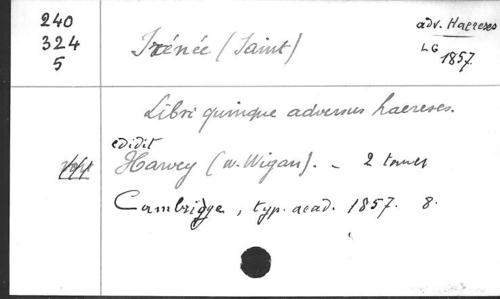 240
324
5
Irénée (Saint)
adv. Haereses
LG
1857.
Libri quinque adversus haereses.
edidit
Harvey (W. Wigan). - 2 tomes
Cambridge, typ. acad. 1857. 8.